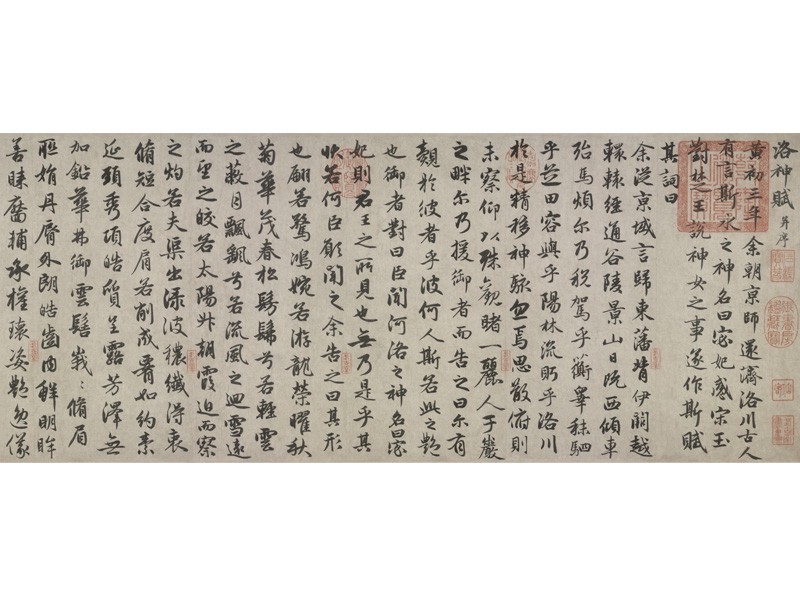 洛神賦 并序
黄初三年余朝京師還濟洛川古人
有言斯水之神名曰宓妃感宋玉
對楚王說神女之事遂作斯賦
其詞曰
余從京域言歸東藩背伊闕越
轘轅經通谷陵景山日既西傾車
殆馬煩尔乃稅駕乎蘅皋秣駟
乎芝田容與乎陽林流眄乎洛川
於是精移神駭忽焉思散俯則
未察仰以殊觀睹一麗人于巖
之畔尔乃援御者而告之曰尔有
覿於彼者乎彼何人斯若此之艷
也御者對曰臣聞河洛之神名曰宓
妃則君王之所見也無乃是乎其
狀若何臣願聞之余告之曰其形
也翩若驚鴻婉若游龍榮曜秋
菊華茂春松髣髴兮若輕雲
之蔽月飄飖兮若流風之迴雪遠
而望之皎若太陽升朝霞迫而察
之灼若夫渠出淥波穠纖得衷
脩短合度肩若削成腰如約素
延頸秀項皓質呈露芳澤無
加鉛華弗御雲髻峩〻脩眉
聯娟丹脣外朗皓齒内鮮明眸
善睞靨輔承權瓌姿艷逸儀